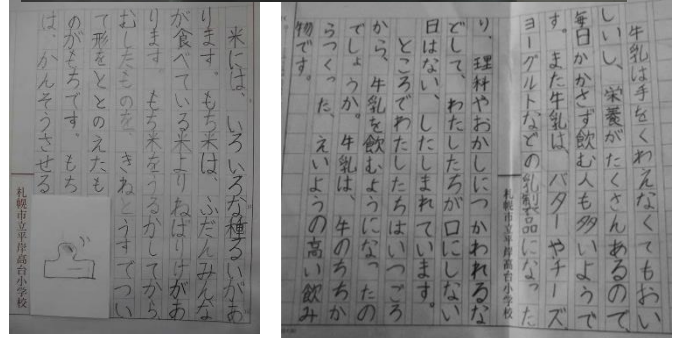 米には、いろいろな種るいがあ
ります。もち米は、ふだんみんな
が食べている米よりねばりけがあ
ります。もち米をうるかしてから、
むしたものを、きねとうすでつい
て形をととのえたも
のがもちです。もち
は、かんそうさせる
札幌市立平岸高台小学校
牛乳は手をくわえなくてもおい
しいし、栄養がたくさんあるので、
毎日かかさず飲む人も多いようで
す。また牛乳は、バターやチーズ、
ヨーグルトなどの乳製品になった
札幌市立平岸高台小学校
り、理科やおかしにつかわれるな
どして、わたしたちが口にしない
日はない、したしまれています。
ところでわたしたちはいつごろ
から、牛乳を飲むようになったの
でしょうか。牛乳は、牛のちちか
らつくった、えいようの高い飲み
物です。